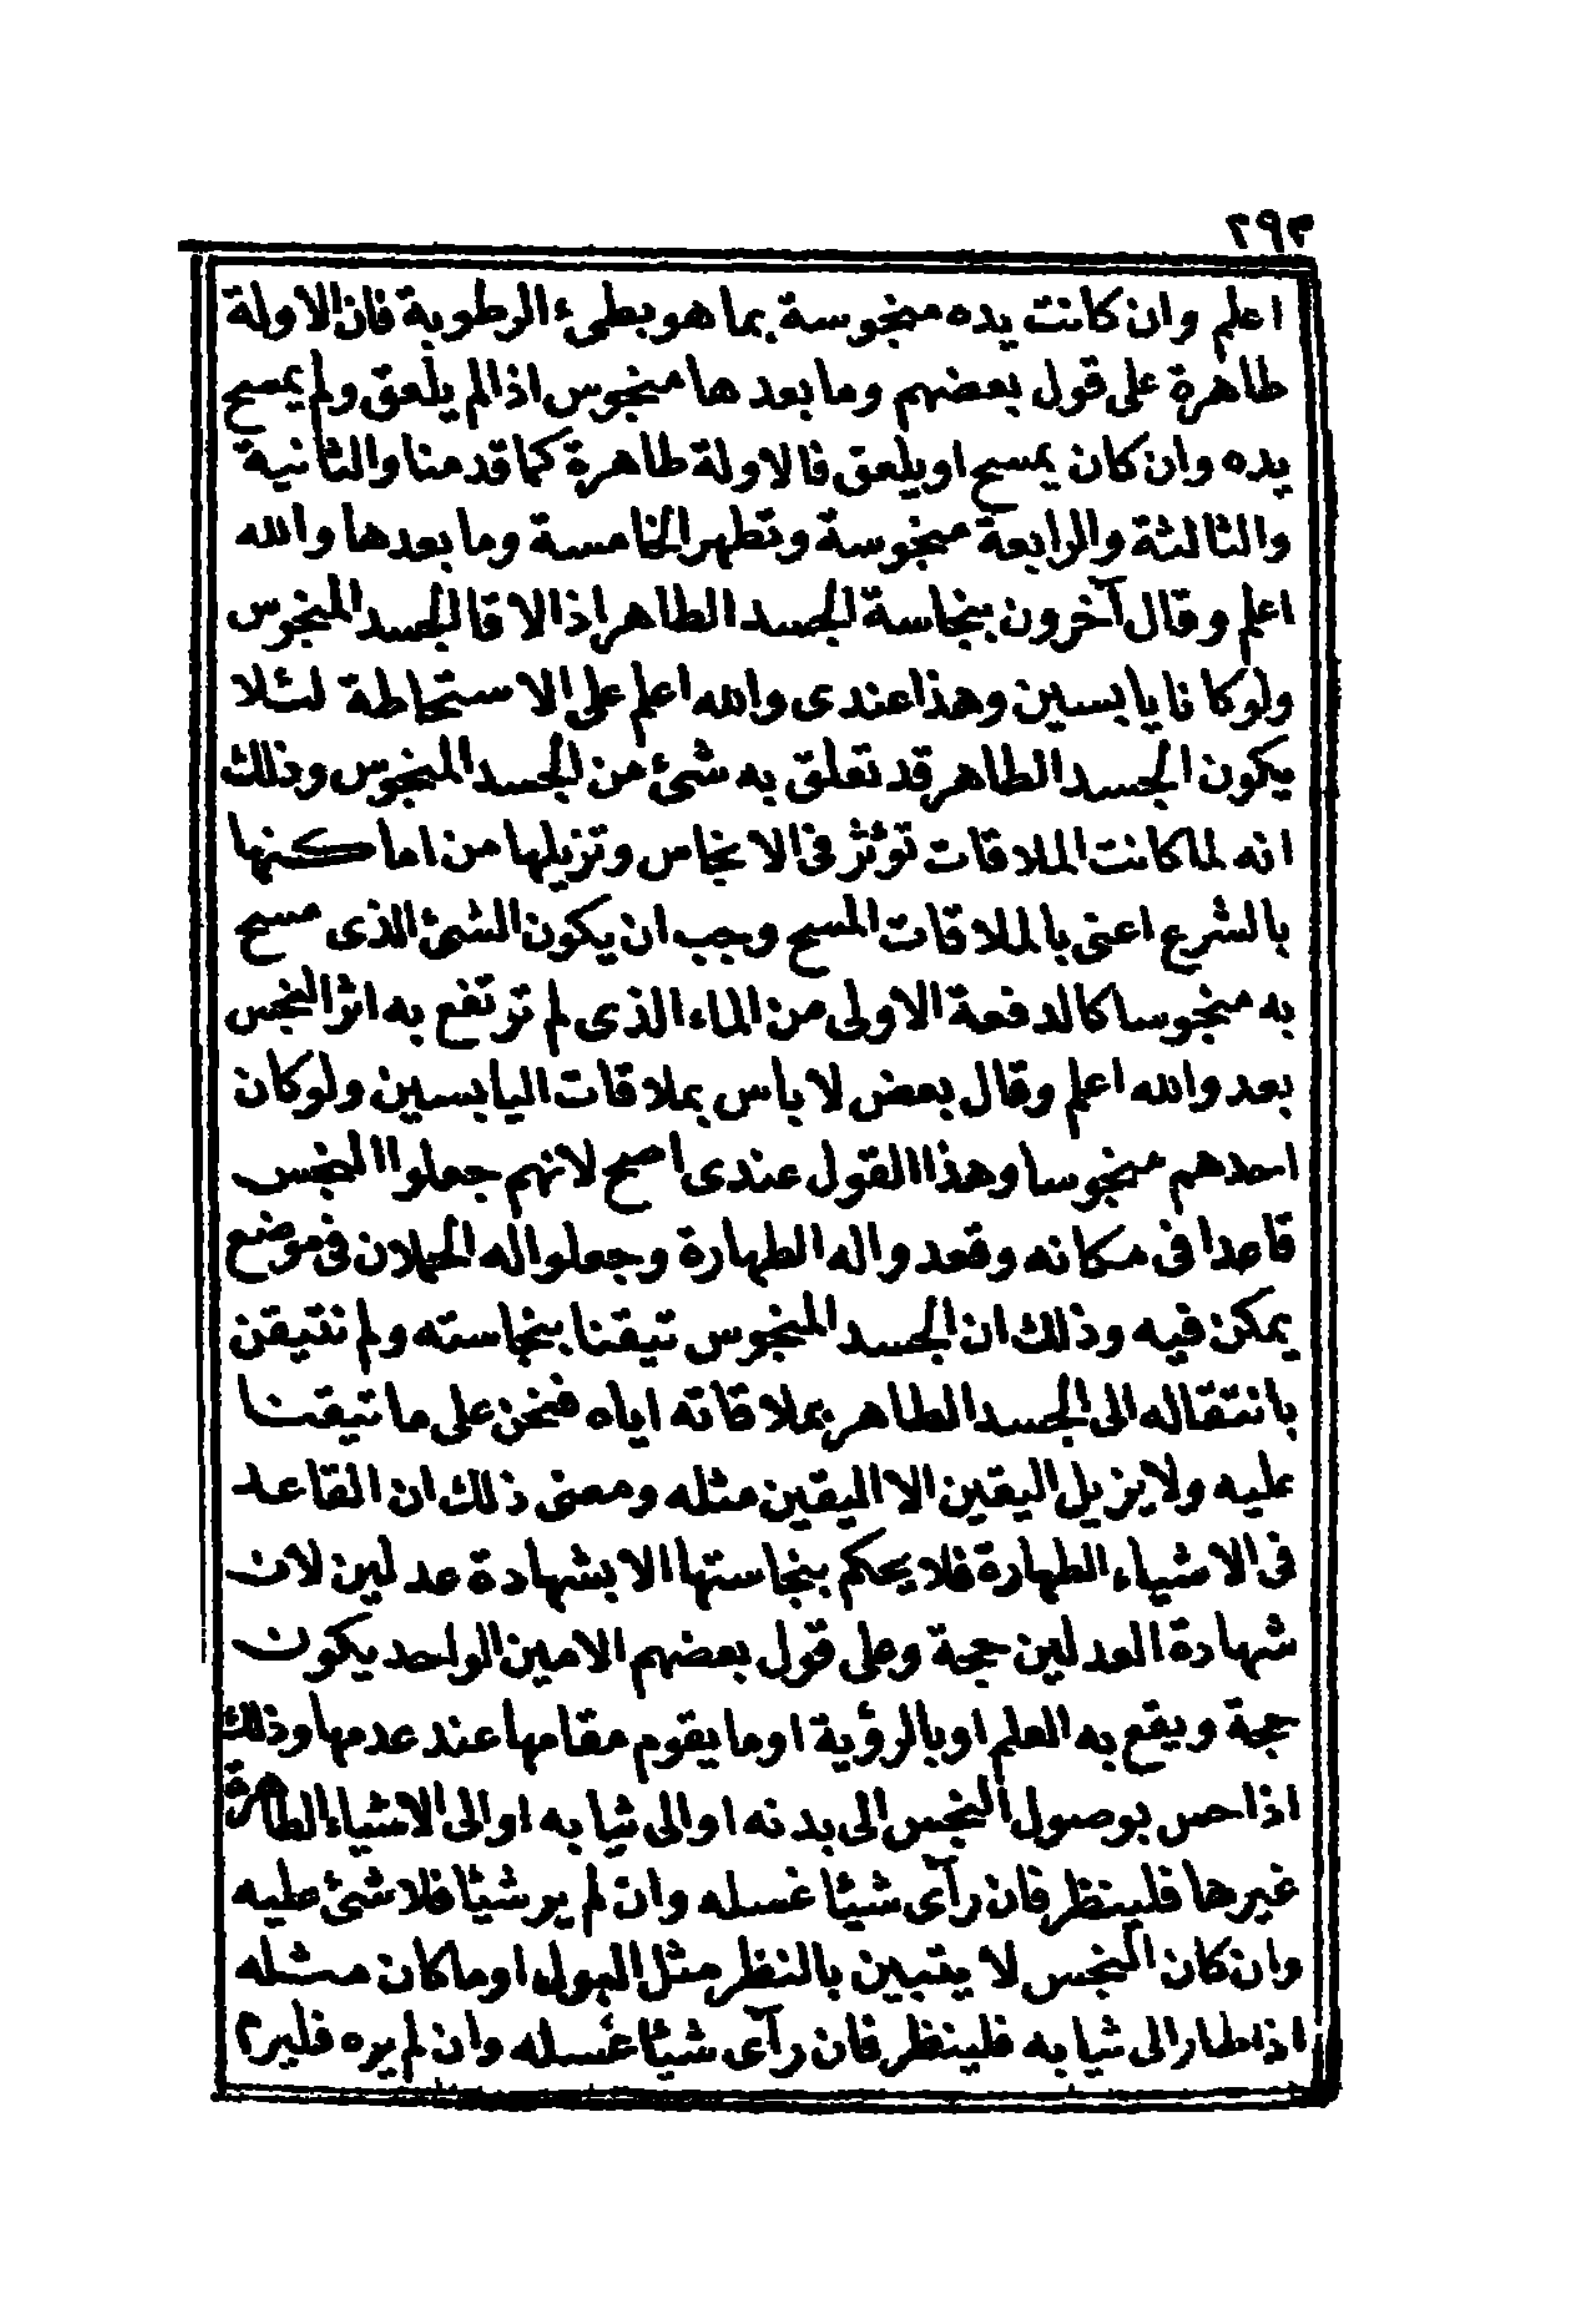 ٢٩٣
اعلم وان كانت يده منجوسة بما هو بطىء الرطوبة فان الاولة
طاهرة على قول بعضهم وما بعدها منجوس اذا لم يلعق ولم يمسح
يده وان كان يمسح او يلعق فالاولة طاهرة كما قدمنا والثانية
والثالثة والرابعة منجوسة وتطهر الخامسة وما بعدها والله
اعلم وقال آخرون بنجاسة الجسد الطاهر اذا لاقا الجسد المنجوس
ولو كانا يابسين وهذا عندى والله اعلم على الاستحاطة لئلا
يكون الجسد الطاهر قد تعلق به شئ من الجسد المنجوس وذلك
انه لما كانت الملاقات توثر فى الانجاس وتزيلها من اماكنها
بالشرع اعنى بالملاقات المسح وجب ان يكون الشئ الذى مسح
به منجوسا كالدفعة الاولى من الماء الذى لم ترتفع به اثر النجس
بعد والله اعلم وقال بعض لا باس بملاقات اليابسين ولو كان
احدهم منجوسا وهذا القول عندى اصح لانهم جعلوا النجس
قاعدا فى مكانه وقعدوا له الطهارة وجعلوا له الحملان فى موضع
يمكن فيه وذلك ان الجسد المنجوس تيقنا بنجاسته ولم نتيقن
بانتقاله الى الجسد الطاهر بملاقاته اياه فنحن على ما تيقنا
عليه ولا يزيل اليقين الا اليقين مثله ومعنى ذلك ان القاعد
فى الاشياء الطهارة فلا يحكم بنجاستها الا بشهادة عدلين لان
شهادة العدلين حجة وعلى قول بعضهم الامين الواحد يكون
حجة ويقع به العلم او بالرؤية او ما يقوم مقامها عند عدمها وذلك
اذا حس بوصول النجس الى بدنه او الى ثيابه او الى الاشياء الطاهرة
غيرها فلينظر فان رآى شيئا غسله وان لم ير شيئا فلا شئ عليه
وان كان النجس لا يتبين بالنظر مثل البول او ما كان مثله
اذا طار الى ثيابه فلينظر فان رآى شيئا غسله وان لم يره فليرم